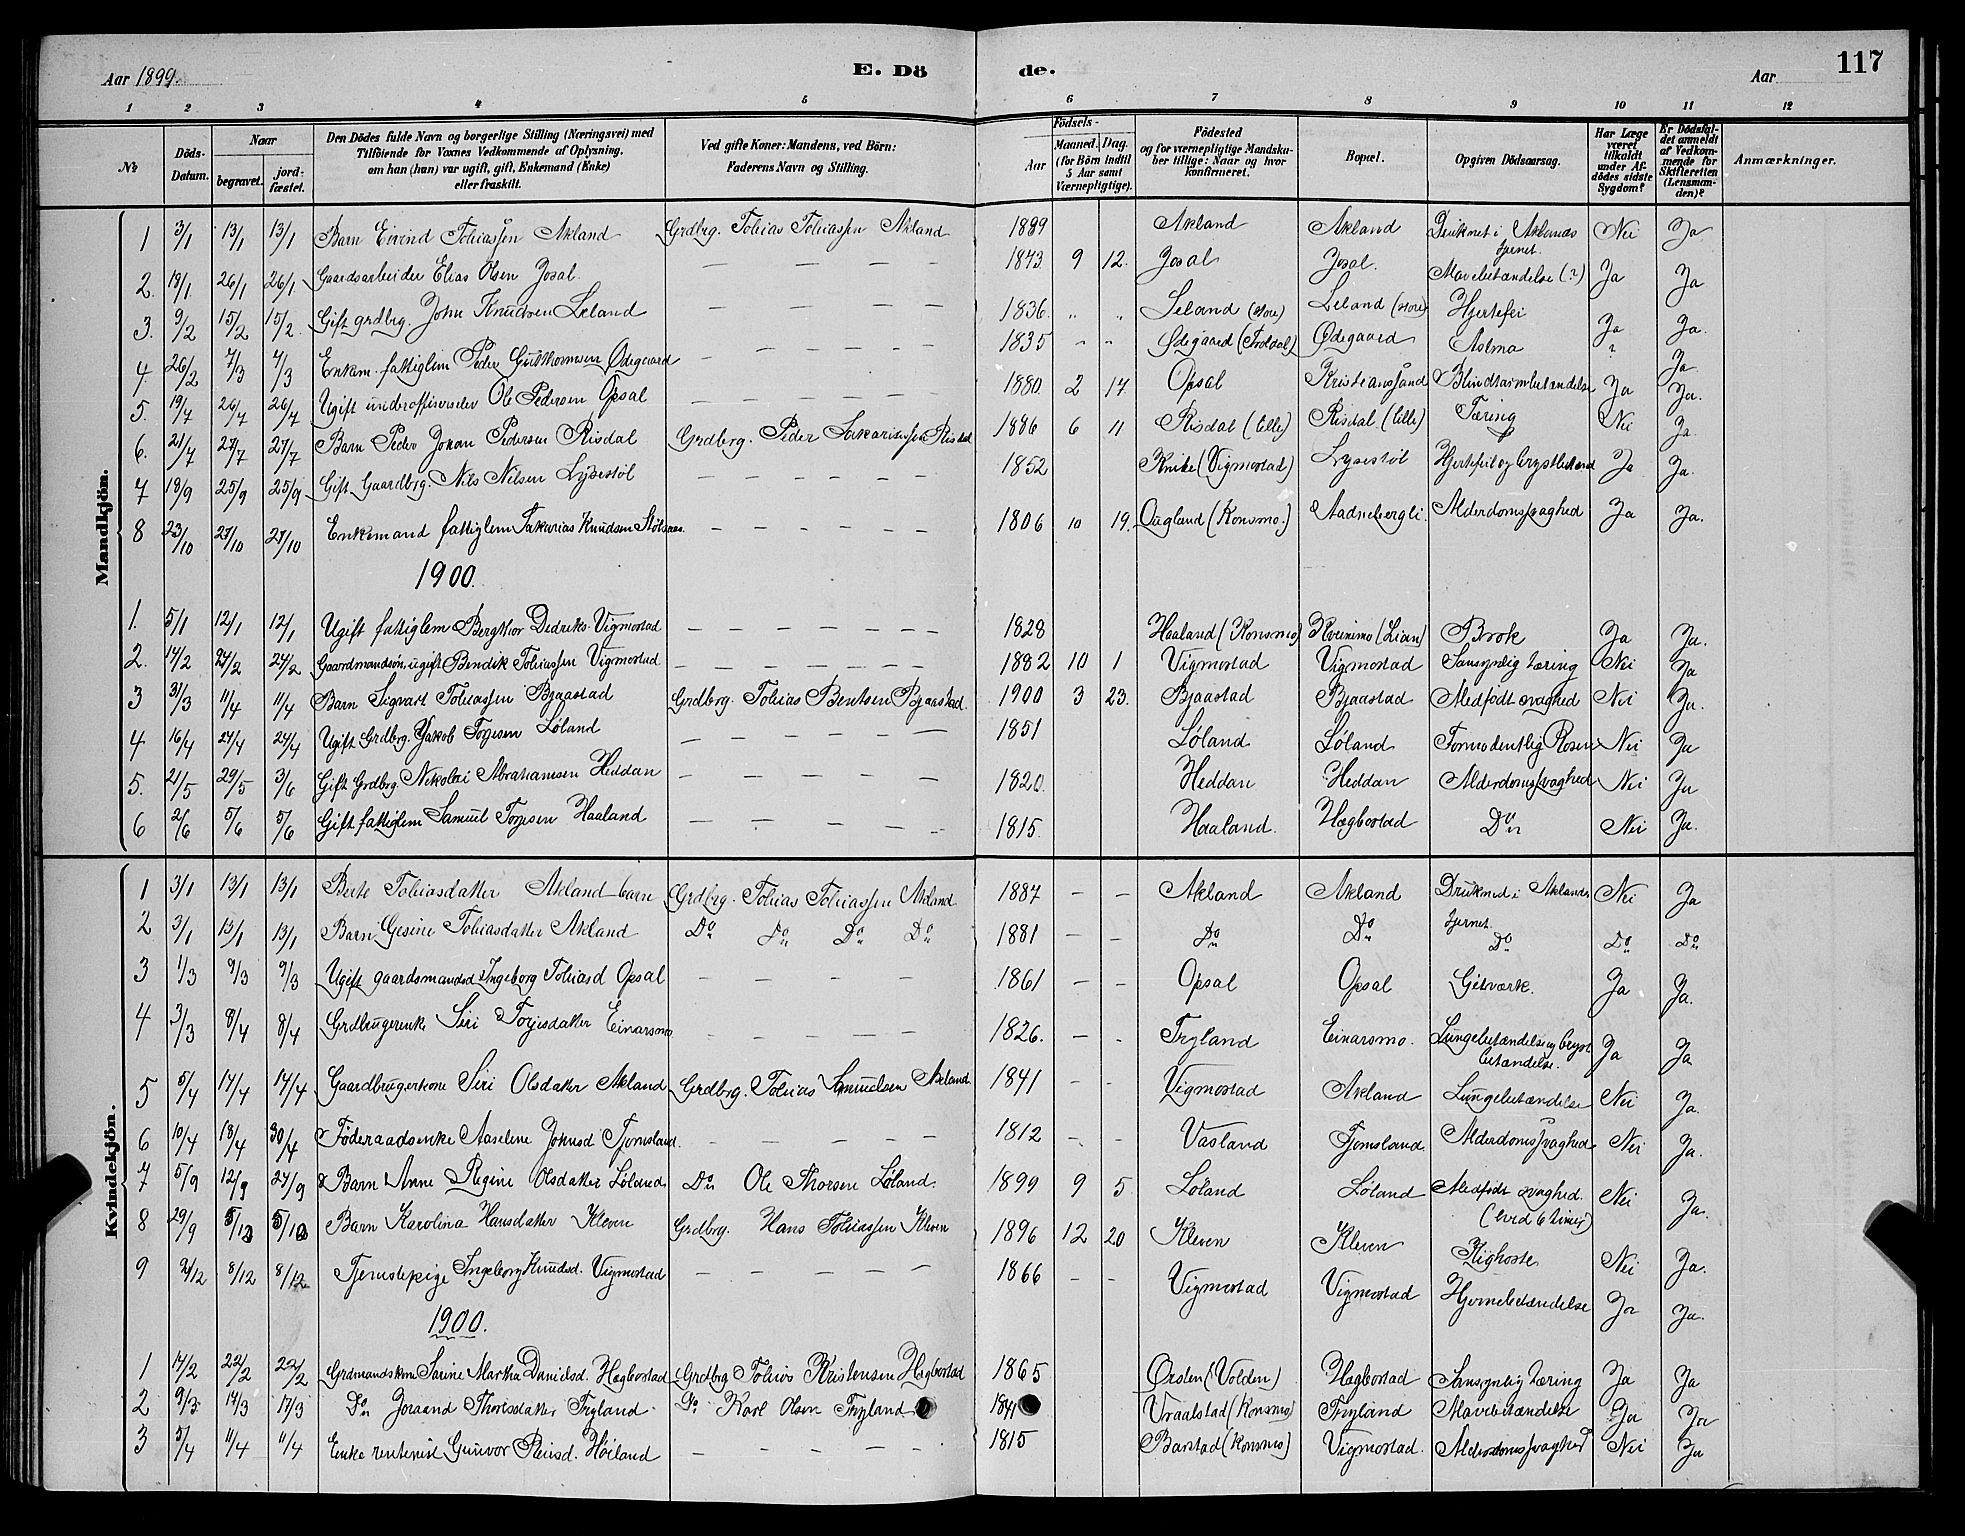 Aar 1899. E. Dö de. Aar 117
1 2 3 4 5 6 7 8 9 10 11 12
No. Döds-Datum. Naar begravet. jord-fæstet. Den Dödes fulde Navn og borgerlige Stilling (Næringsvei) med Tilföiende for Voxnes Vedkommende af Oplysning, om han (hun) var ugift, gift, Enkemand (Enke) eller fraskilt. Ved gifte Koner: Mandens, ved Börn: Faderens Navn og Stilling. Födsels- Aar Maaned. Dag. (for Börn indtil 5 Aar samt Værnepligtige). Födested og for værnepligtige Mandskaber tillige: Naar og hvor konfirmeret. Bopæl. Opgiven Dödsaarsag. Har Læge været tilkaldt under Afdödes sidste Sygdom? Er Dödsfaldet anmeldt af Vedkommende for Skifteretten (Lensmanden)? Anmærkninger.
Mandkjön.
1 3/1 13/1 13/1 Barn Eivind Tobiassen Akland Grdbrg. Tobias Tobiassen Akland 1889 Akland Akland Druknet i Aklands tjernet. Nei Ja
2. 18/1 26/1 26/1 Gaardsarbeider Elias Olsen Josal — — — — — 1873 9 12. Josal Josal. Mavebetændelse (?) Ja Ja
3. 9/2 15/2 15/2. Gift grdbrg. John Knudsen Leland — — — — — 1836. " " Leland (store) Leland (store) Hjertefei Ja Ja.
4. 26/2 7/3 7/3 Enkem. fattiglem Peder Gulthomsen Ødegaard — — — — — 1835 " " Ødegaard (Troldal) Ødegaard Astma ? Ja
5. 19/4 26/4 26/4 Ugift underofficerselev Ole Pedersen Opsal — — — — — 1880. 2 17. Opsal Kristianssand Blindtarmbetændelse Ja Ja.
6. 21/7 27/7 27/7 Barn Peder Johan Pedersen Risdal Grdbrg. Peder Sakariassen Risdal 1886 6 11 Risdal (lille) Risdal. (lille) Tæring Nei Ja
7 18/9 25/9 25/9 Gift Gaardbrg. Nils Nilsen Lysestøl — — — — — 1852 Knibe (Vigmostad) Lysestøl Hjertefeil og brystbetænd Ja Ja.
8 23/10 27/10 27/10 Enkemand fattiglem Sakarias Knudsen — — — — — 1806 10 19. Ougland (Konsmo.) Aadnebergli. Alderdomssvaghed Ja Ja.
1900.
1. 5/1 12/1 12/1 Ugift fattiglem Bergthor Dedriks. Vigmostad — — — — — — — 1828 Haaland (Konsmo) Kvernimo (Lian) Brok Ja Ja.
2. 14/2 24/2 24/2 Gaardmandsøn, ugift Bendik Tobiassen Vigmostad — — — — — — — 1882 10 1 Vigmostad Vigmostad Sansynlig tæring Nei Ja
3 31/3 11/4 11/4 Barn Sigvart Tobiassen Bjaastad Grdbrg. Tobias Bentsen Bjaastad. 1900 3 23. Bjaastad Bjaastad Medfødt svaghed Nei Ja.
4 16/4 24/4 24/4 Ugift Grdbrg. Jakob Torjesen Løland — — — — — — 1851 Løland Løland Formodentlig Rosen Nei Ja
5. 21/5 29/5 3/6 Gift Grdbrg. Nikolai Abrahamsen Heddan — — — — — — 1820. Heddan Heddan Alderdomssvaghed Nei Ja
6 2/6 5/6 5/6 Gift fattiglem Samuel Torjesen Haaland — — — — — — 1815. Haaland. Hægbostad Do Nei Ja.
Kvindekjön.
1 3/1 13/1 13/1 Berte Tobiasdatter Akland barn Grdbrg. Tobias Tobiassen Akland 1887 — — Akland Akland Druknet i Aklands tjernet. Nei Ja
2 3/1 13/1 13/1 Barn Gesine Tobiasdatter Akland Do Do Do Do 1881 — — Do Do Do Do Do
3 1/3 9/3 9/3 Ugift gaardsmandsd Ingeborg Tobiasd Opsal — — — — 1861 — — Opsal Opsal Gitværk. Ja Ja.
4 3/3 8/4 8/4 Grdbrugerenke Siri Torjesdatter Einarsmo — — — — 1826. — — Tryland Einarsmo. Lungebetændelse og bryst betændelse. Ja Ja
5 5/4 14/4 14/4 Gaardbrugerkone Siri Olsdatter Akland Grdbrg. Tobias Samuelsen Akland. 1841 — — Vigmostad Akland Lungebetændelse Nei Ja.
6 10/4 18/4 30/4 Føderaadsenke Aaselene Johnsd Tjomsland. — — — — 1812 — — Vasland Tjomsland. Alderdomssvaghed Nei Ja.
7 5/9 12/9 24/9 Barn Anne Regine Olsdatter Løland Do Ole Thorsen Løland. 1899 9 5 Løland Løland Medfødt svaghed. (levd 6 timer) Nei Ja.
8 29/9 5/12 5/12 Barn Karolina Hansdatter Kleven Grdbrg. Hans Tobiassen Kleven 1896 12 20 Kleven Kleven Kighoste Nei Ja.
9 8/12 8/12 Tjenestepige Ingeborg Knudsd. Vigmostad — — — — — 1866 — — Vigmostad Vigmostad Hjernebetændelse Ja Ja.
1900.
1 14/2 22/2 22/2 Grdmandskone Sarine Martha Danielsd. Hægbostad Grdbrg Tobias Kristensen Hægbostad 1865 Ørsten (Volden) Hægbostad Sansynlig tæring Ja Ja
2 9/3 14/3 17/3 Do Joraand Thorsdatter Tryland. Do Karl Olsen Tryland 1841 Vraalstad (Konsmo) Tryland Mavebetændelse Ja Ja
3 5/4 11/4 11/4 Enke Gunvor Reiersd. Høiland — — — — — 1815 Barstad (Konsmo) Vigmostad. Alderdomssvaghed Nei Ja